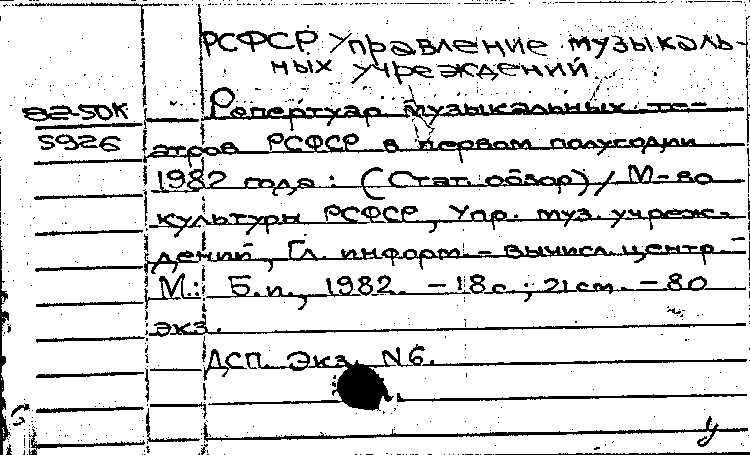 РСФСР Управление музыкаль-
ных учреждений
82-50К
Репертуар музыкальных те-
5926
атров РСФСР в первом полугодии
1982 года: (Стат. обзор) / М-во
культуры РСФСР, Упр. муз. учреж-
дений, Гл. информ.-вычисл. центр. -
М.: Б.и., 1982. - 18с.; 21см. - 80
экз.
ДСП. Экз. N6.
у